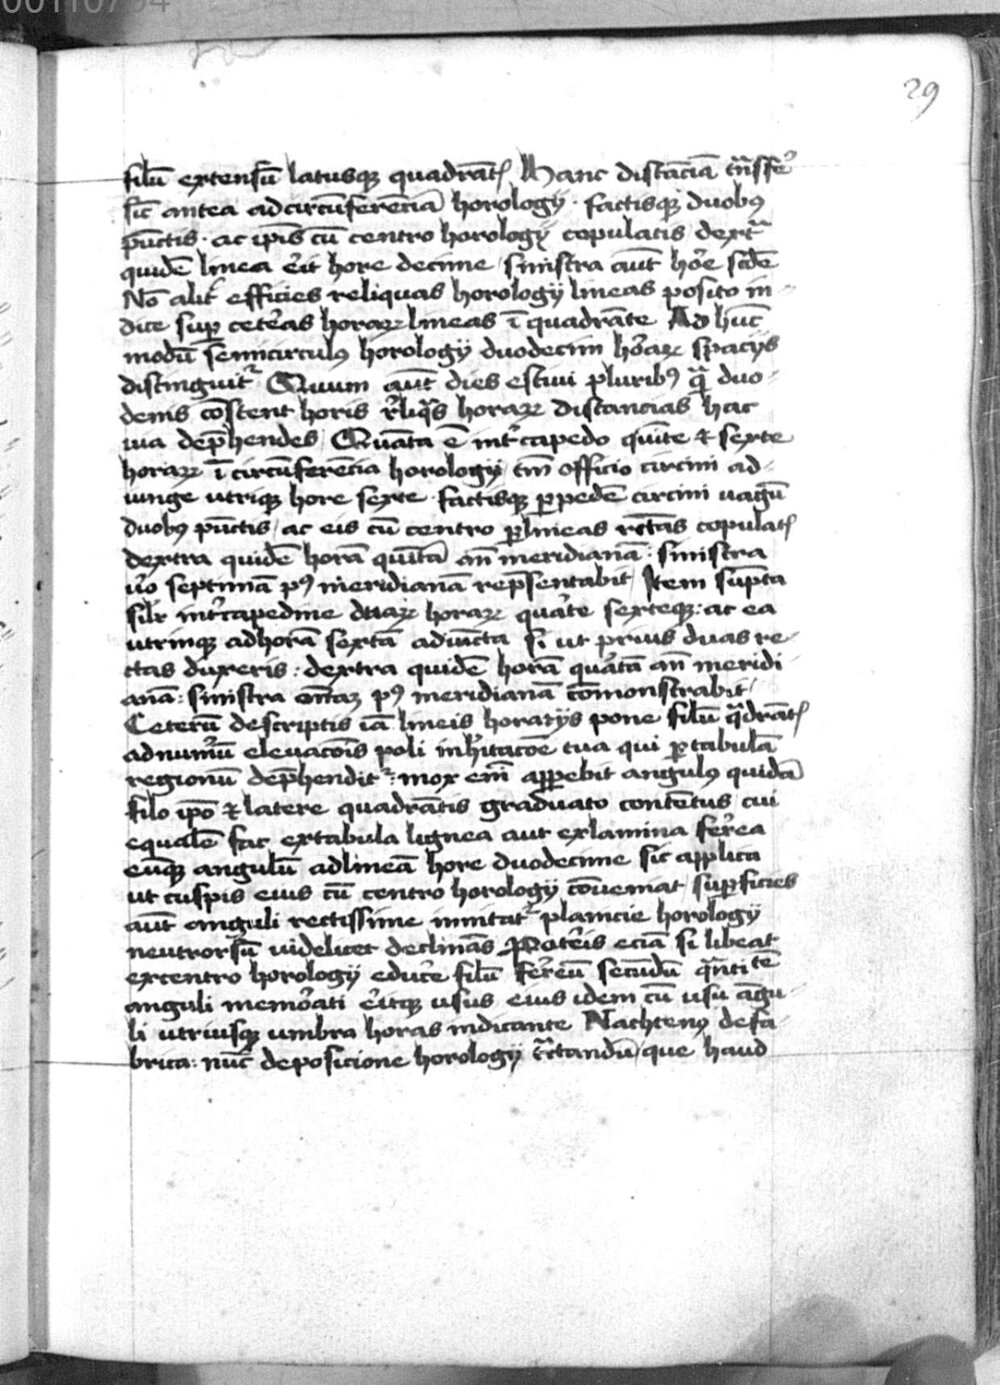 00110794
29
filū extensū latusqꝫ quadrātꝭ Hanc distāciā trāsfer̄
sic antea ad circūferēciā horologÿ · factisqꝫ duobꝰ
pūctis · ac ip̄is cū centro horologÿ copulatis dextᷓ
quidē linea er̄it hore decime / sinistra aūt hor̄e scd̄e
No̅ alit̄ efficies reliquas horologÿ lineas posito in-
dice suꝑ ceter̄as horaꝝ lineas ī quadrāte Ad hūc
modū semicirculꝰ horologÿ duodecim hor̄aꝝ spacÿs
distinguit᷑ Quum aūt dies estiui pluribꝰ qᷓ duo-
denis cōstent horis rl̄iqᷓs horaꝝ distancias hac
uia dep̄hendes / Quāta ē int̄capedo quīte & sexte
horaꝝ ī circūferēcia horologÿ / tm̄ officio circini ad-
iunge utriqꝫ hore sexte · factisqꝫ ꝑ pedē circini uagū
duobꝰ pūctis / ac eis cū centro ꝑ lineas rc̄tas copulatꝭ
dextra quidē horā quītā an̄ meridianā · sinistra
ūo septimā pꝰ meridianā rep̄sentabit / Item sūpta
sil̄r int̄capedine duaꝝ horaꝝ quar̄te sexteqꝫ: ac ea
utrinqꝫ ad horā sextā adiūcta si ut prius duas re-
ctas duxeris: dextra quidē horā quar̄tā an̄ meridi
anā: sinistra octauā pꝰ meridianā cōmonstrabit /
Ceterū descriptis iā lineis horarÿs pone filū qᷓdrātꝭ
ad numer̄ū eleuacōis poli inhītacōe tua qui ꝑ tabulā
regionū dep̄hendit᷑: mox em̄ apꝑebit angulꝰ quidā
filo ip̄o & latere quadrātis graduato contētus / cui
equalē fac ex tabula lignea aut ex lamina fer̄ea
eūqꝫ angulū ad lineā hore duodecime sic applica
ut cuspis eius cū centro horologÿ cōueniat / suꝑficies
aūt anguli rectissime innitat᷑ planicie horologÿ
neutrorsū uidelicet declinās Poter̄is eciā si libeat
ex centro horologÿ educ̄e filū fer̄eū secūdū qᷓntitētē
anguli memor̄ati er̄itqꝫ usus eius idem cū usu āgu-
li utriusqꝫ umbra horas indicante Hactenꝰ de fa-
brica: nūc de posicione horologÿ tᷓctandū / que haud